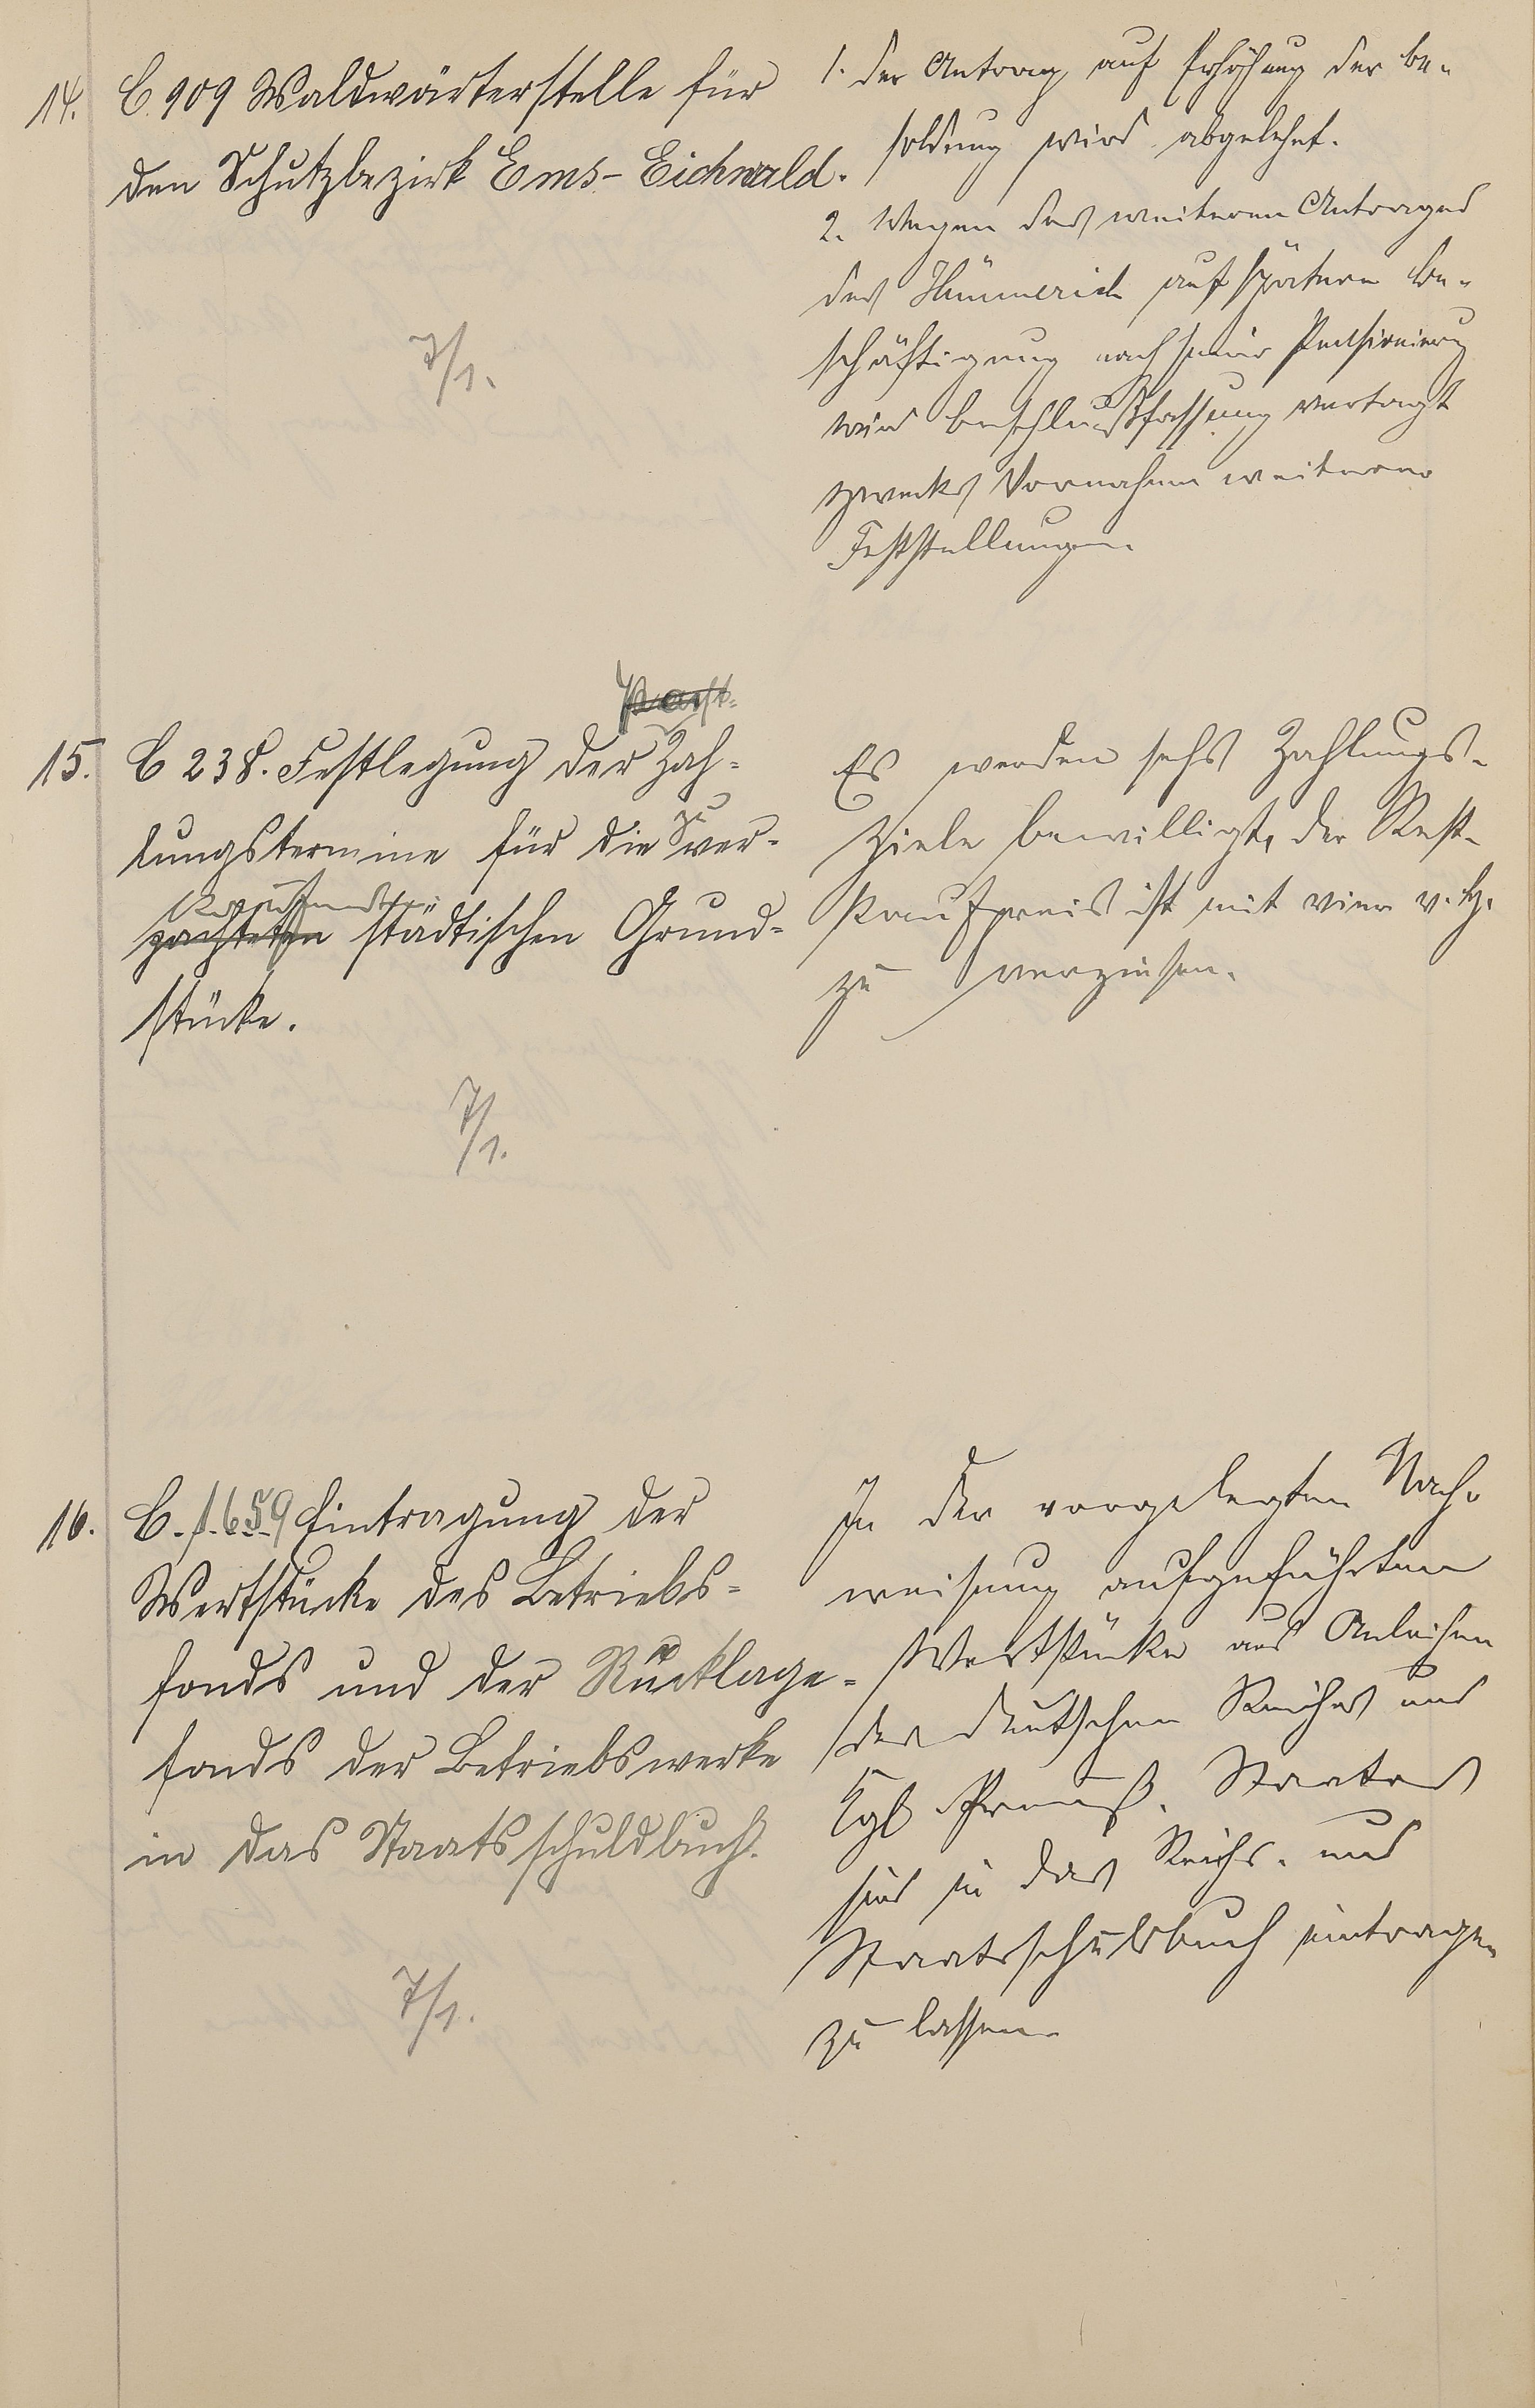 14.
C. 909 Waldwärterstelle für
den Schutzbezirk Ems-Eichwald.
7/1.
1. Der Antrag auf Erhöhung der Be-
soldung wird abgelehnt.
2. Wegen des weiteren Antrages
des Hümmerich auf spätere Be-
schäftigung nach seiner Pensionierung
wird Beschlußfassung vertagt
zwecks Vornahme weiterer
Feststellungen.
15.
C 238. Festlegung der Zah-
lungstermine für die zu ver-
pachteten städtischen Grund-
stücke.
7/1.
Es werden sechs Zahlungs-
ziele bewilligt, der Rest-
kaufpreis ist mit vier v. H.
zu verzinsen.
16.
C. 1659 Eintragung der
Wertstücke des Betriebs-
fonds und der Rücklage-
fonds der Betriebswerke
in das Staatsschuldbuch.
7/1.
In der vorgelegten Nach-
weisung aufgeführten
Wertstücke aus Anleihen
des deutschen Reiches und
Kgl Preuß. Staates
sind in das Reichs- und
Staatsschuldbuch eintragen
zu lassen.